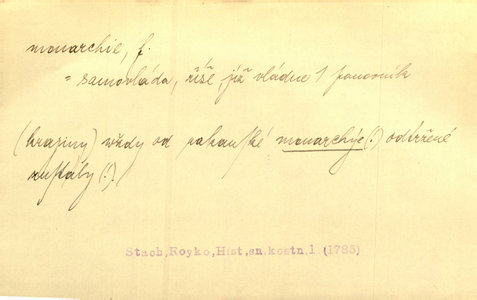 monarchie, f.
= samovláda, říše, jíž vládne 1 panovník
(krajiny) wždy od rakauské monarchýe (:) odtržené
zustály (:).
Stach, Royko, Hist, sn. kostn. 1 (1785)